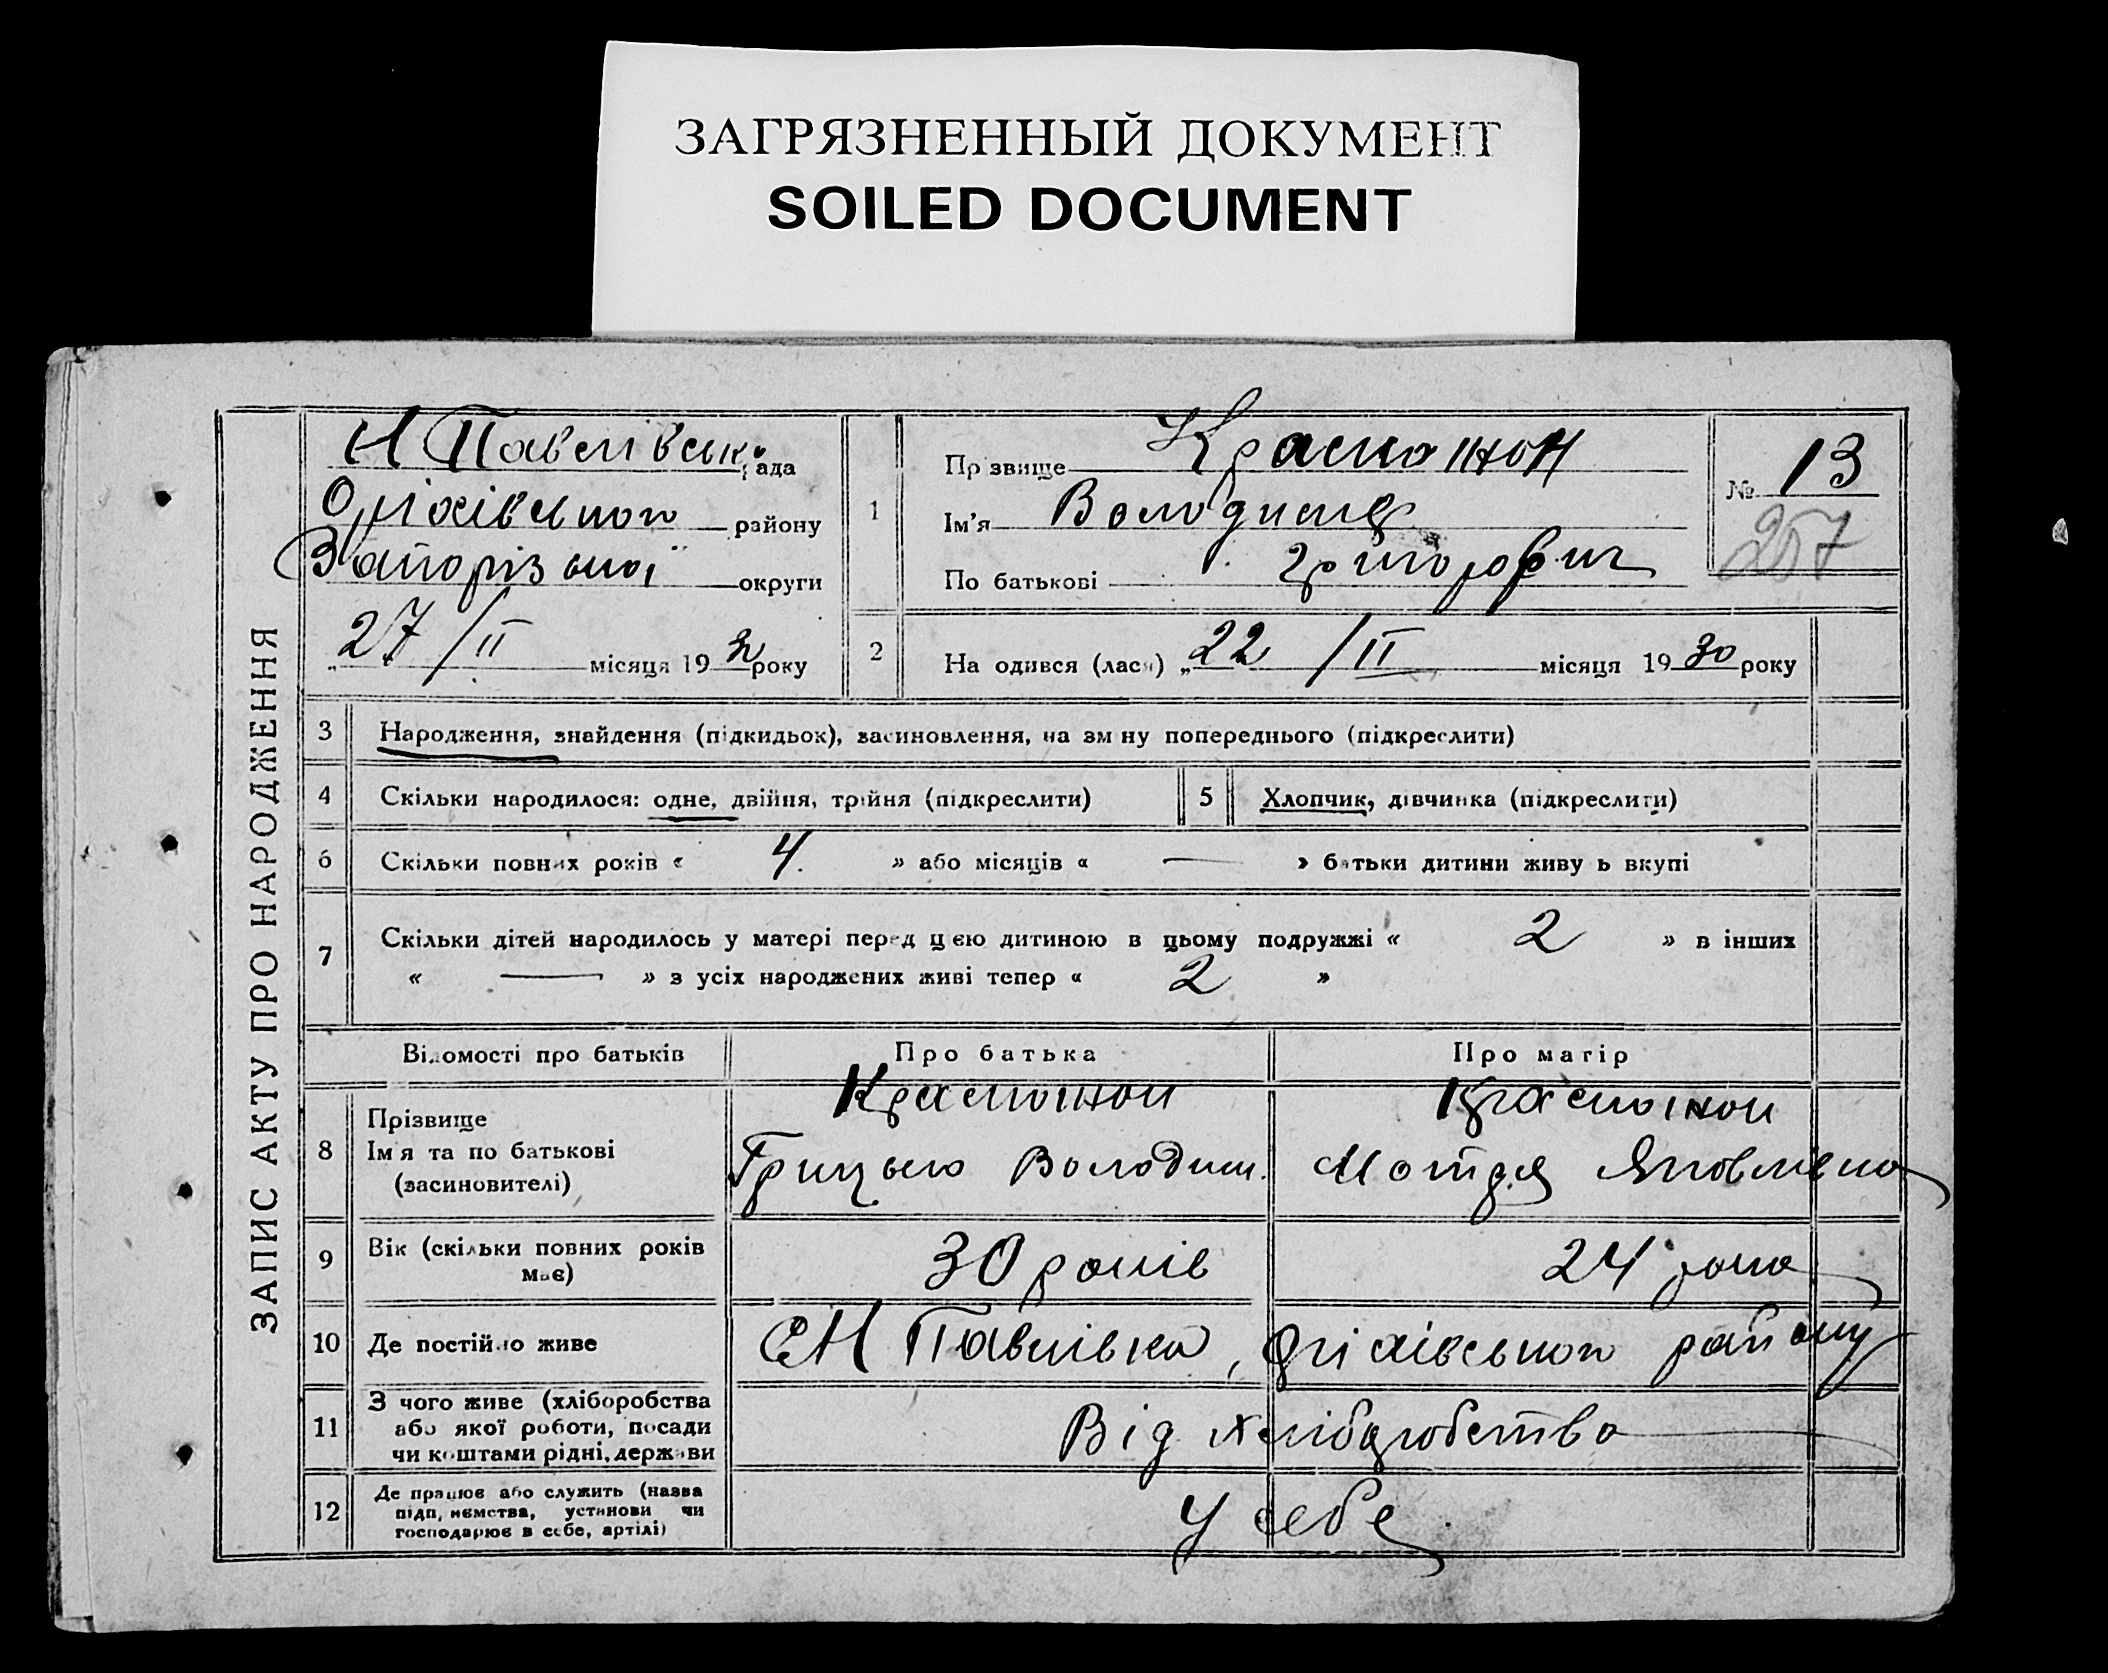 ЗАГРЯЗНЕННЫЙ ДОКУМЕНТ
SOILED DOCUMENT
ЗАПИС АКТУ ПРО НАРОДЖЕННЯ
Н Павлівськ рада
Оріхівського району
Запорізької округи
27/II місяця 1930 року
1
Прізвище
Ім'я Володимир
По батькові Григорович
№ 13
257
2
На одився (лася) „22/II місяця 1930 року
3 Народження, знайдення (підкидьок), засиновлення, на зміну попереднього (підкреслити)
4 Скільки народилося: одне, двійня, трійня (підкреслити)
5 Хлопчик, дівчинка (підкреслити)
6 Скільки повних років « 4 » або місяців « — » батьки дитини живуть вкупі
7 Скільки дітей народилось у матері перед цією дитиною в цьому подружжі « 2 » в інших
« — » з усіх народжених живі тепер « 2 »
Відомості про батьків Про батька Про матір
8 Прізвище
Ім'я та по батькові
(засиновителі)
Грицько Володим. Мотря Яковлівна
9 Вік (скільки повних років
має)
30 років 24 рока
10 Де постійно живе
с Н Павлівка, Оріхівського району
11 З чого живе (хліборобства
або якої роботи, посади
чи коштами рідні, держави
Від хліборобства
12 Де працює або служить (назва
підприємства, установи чи
господарює в себе, артілі)
У себе